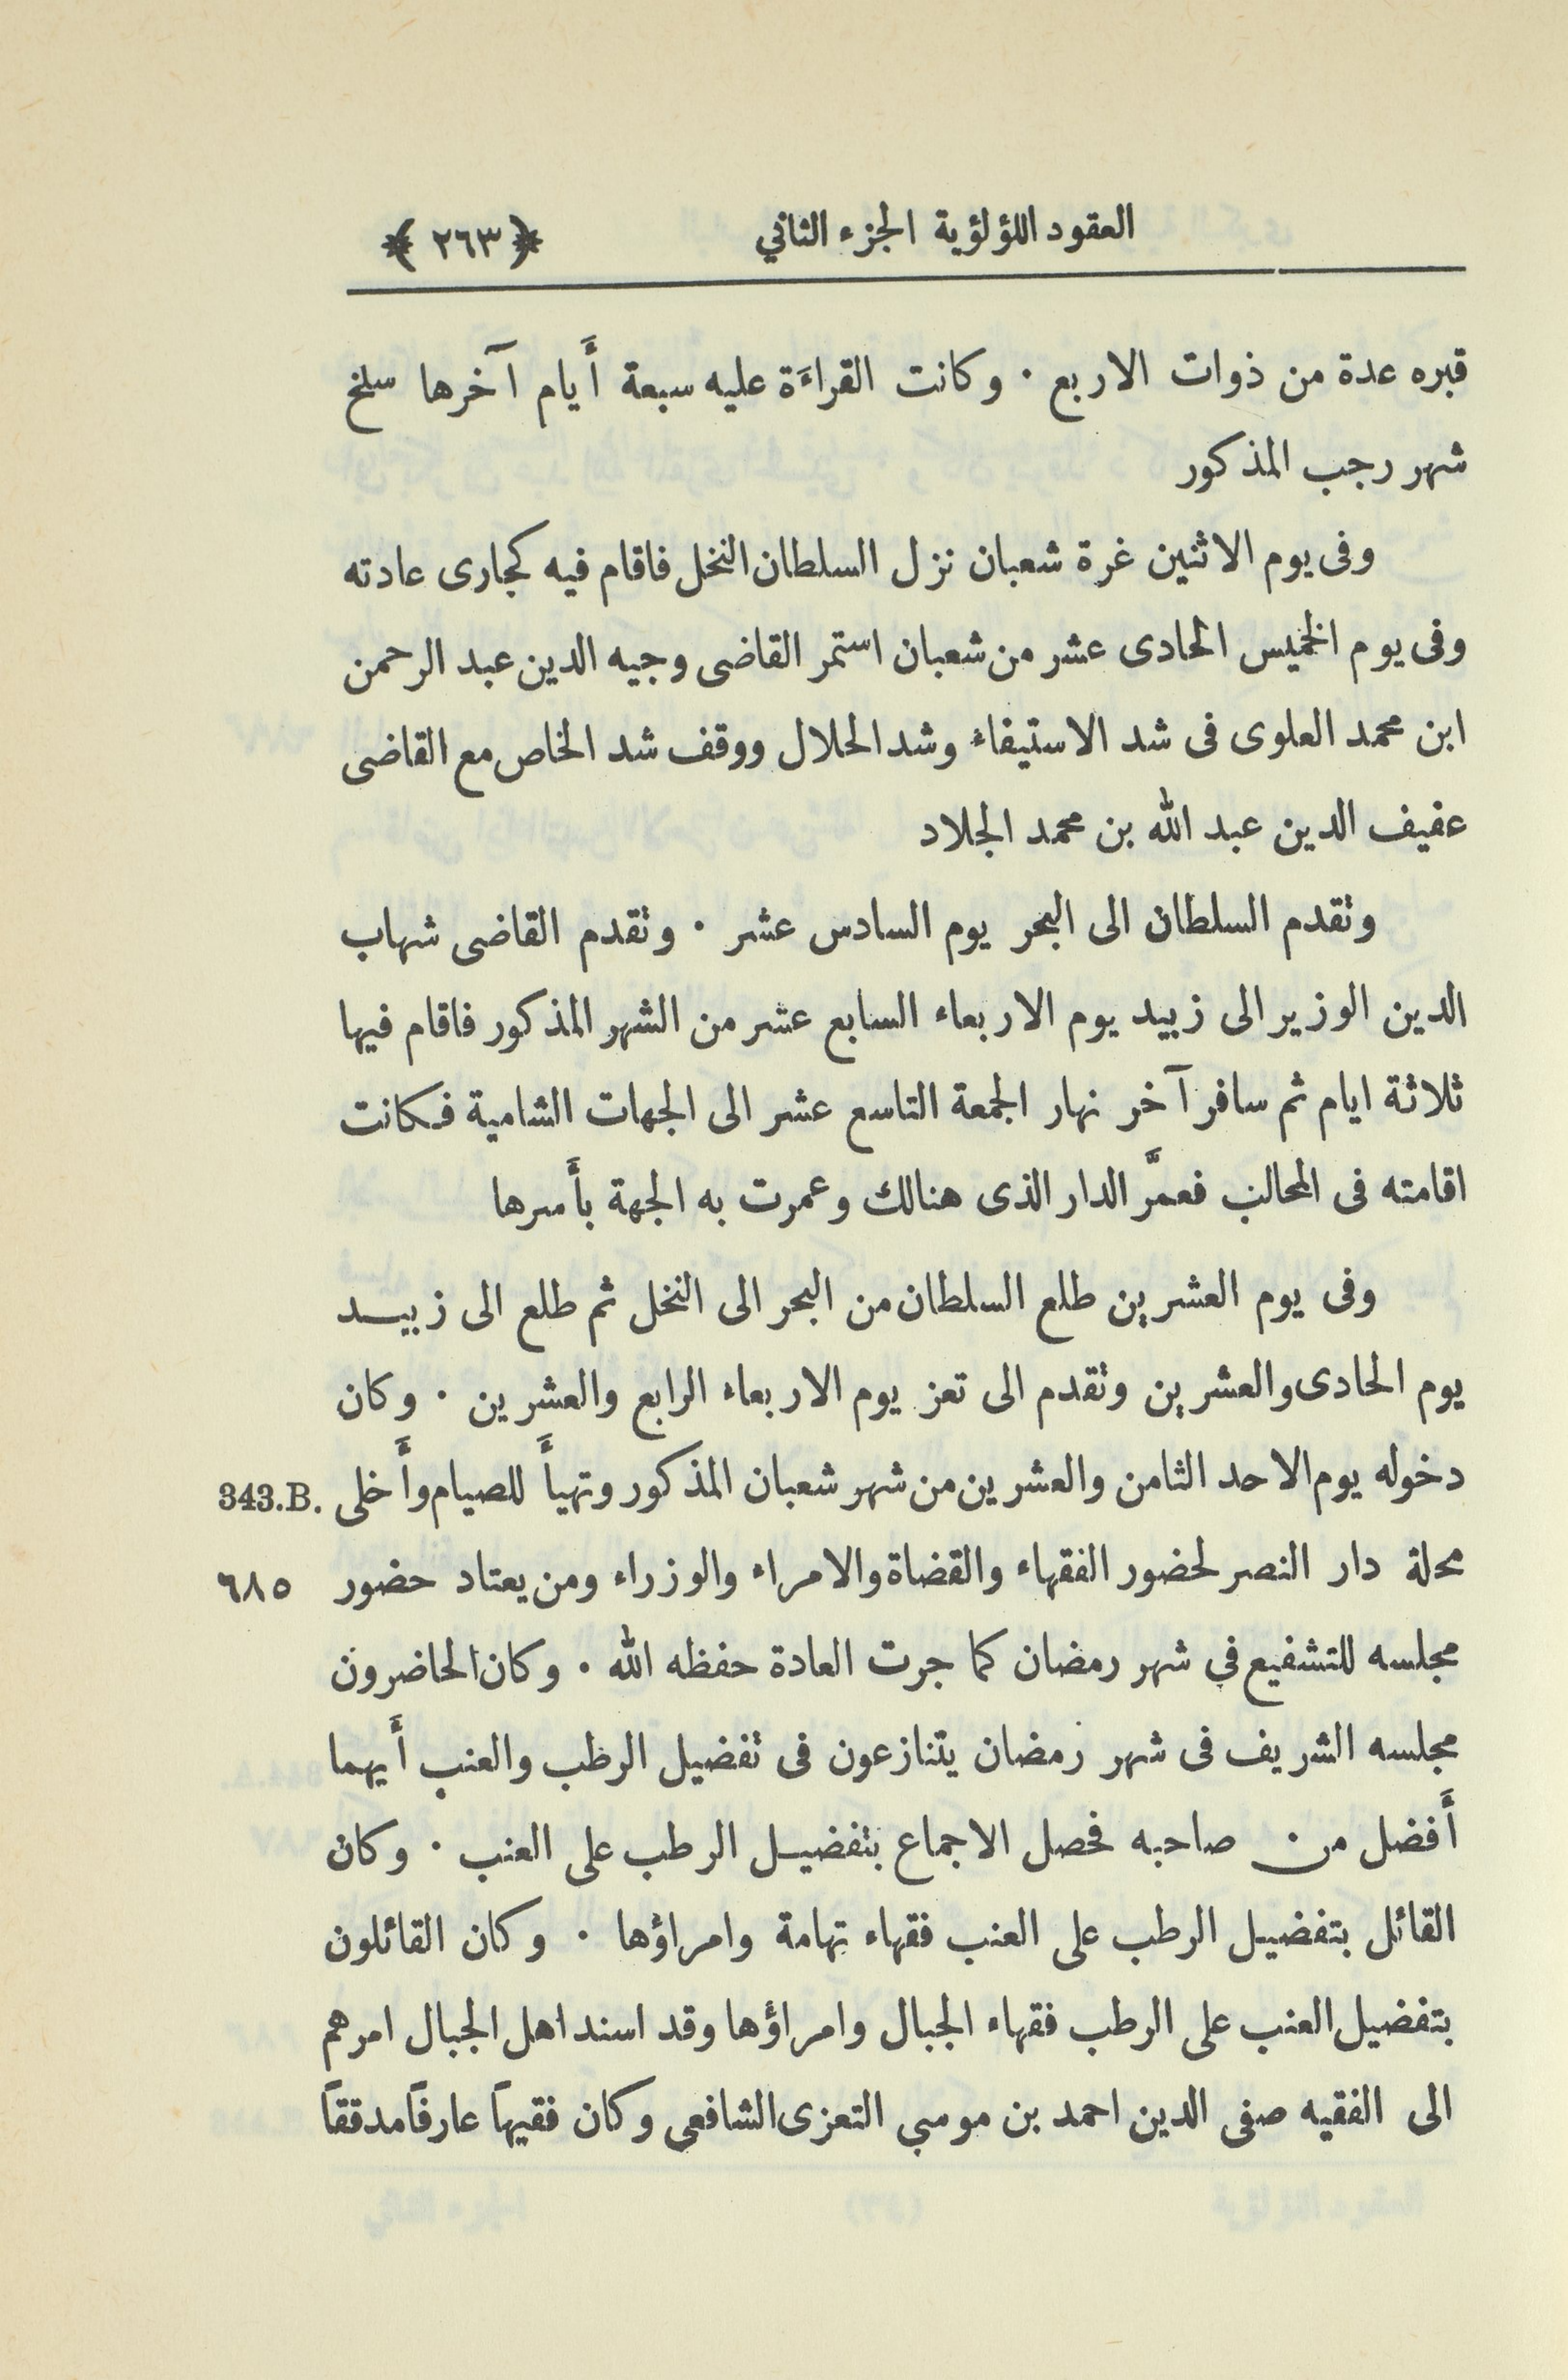 العقود اللؤلؤية الجزء الثاني ﴿ ٢٦٣ ﴾
قبره عدة من ذوات الاربع ٠ وكانت القراءَة عليه سبعة أَيام آخرها سلخ
شهر رجب المذكور
وفى يوم الاثنين غرة شعبان نزل السلطان النخل فاقام فيه كجارى عادته
وفى يوم الخميس الحادى عشر من شعبان استمر القاضى وجيه الدين عبد الرحمن
ابن محمد العلوى فى شد الاستيفاء وشد الحلال ووقف شد الخاص مع القاضى
عفيف الدين عبد الله بن محمد الجلاد
وتقدم السلطان الى البحر يوم السادس عشر ٠ وتقدم القاضى شهاب
الدين الوزير الى زبيد يوم الاربعاء السابع عشر من الشهر المذكور فاقام فيها
ثلاثة ايام ثم سافر آخر نهار الجمعة التاسع عشر الى الجهات الشامية فكانت
اقامته فى المحالب فعمَّر الدار الذى هنالك وعمرت به الجهة بأَسرها
وفى يوم العشرين طلع السلطان من البحر الى النخل ثم طلع الى زبيـــد
يوم الحادى والعشرين وتقدم الى تعز يوم الاربعاء الرابع والعشرين ٠ وكان
دخوله يوم الاحد الثامن والعشرين من شهر شعبان المذكور وتهيأَ للصيام وأَخلى 343.B.
محلة دار النصر لحضور الفقهاء والقضاة والامراء والوزراء ومن يعتاد حضور ٦٨٥
مجلسه للتشفيع في شهر رمضان كما جرت العادة حفظه الله ٠ وكان الحاضرون
مجلسه الشريف فى شهر رمضان يتنازعون فى تفضيل الرطب والعنب أَيهما
أَفضل من صاحبه فحصل الاجماع بتفضيـل الرطب على العنب ٠ وكان
القائل بتفضيـل الرطب على العنب فقهاء تهامة وامراؤها ٠ وكان القائلون
بتفضيل العنب على الرطب فقهاء الجبال وامراؤها وقد اسند اهل الجبال امرهم
الى الفقيه صفى الدين احمد بن موسي التعزى الشافعي وكان فقيهاً عارفاً مدققاً